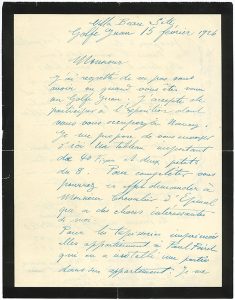 Villa Beau Site
Golfe Juan 15 février 1926
Monsieur
J'ai regretté de ne pas vous
avoir vu quand vous êtes venu
au Golfe Juan. J'accepte de
participer à l'exposition dont
vous vous occupez à Nancy.
Je me propose de vous envoyer
d'ici un tableau important
de 40 Figure et deux petits
de 8. Pour compléter vous
pourrez en effet demander à
Monsieur Chevalier d'Epinal
qui a des choses intéressantes
de moi.
Pour les tapisseries
elles appartiennent à Paul
qui en a installé une partie
dans son appartement. Je ne